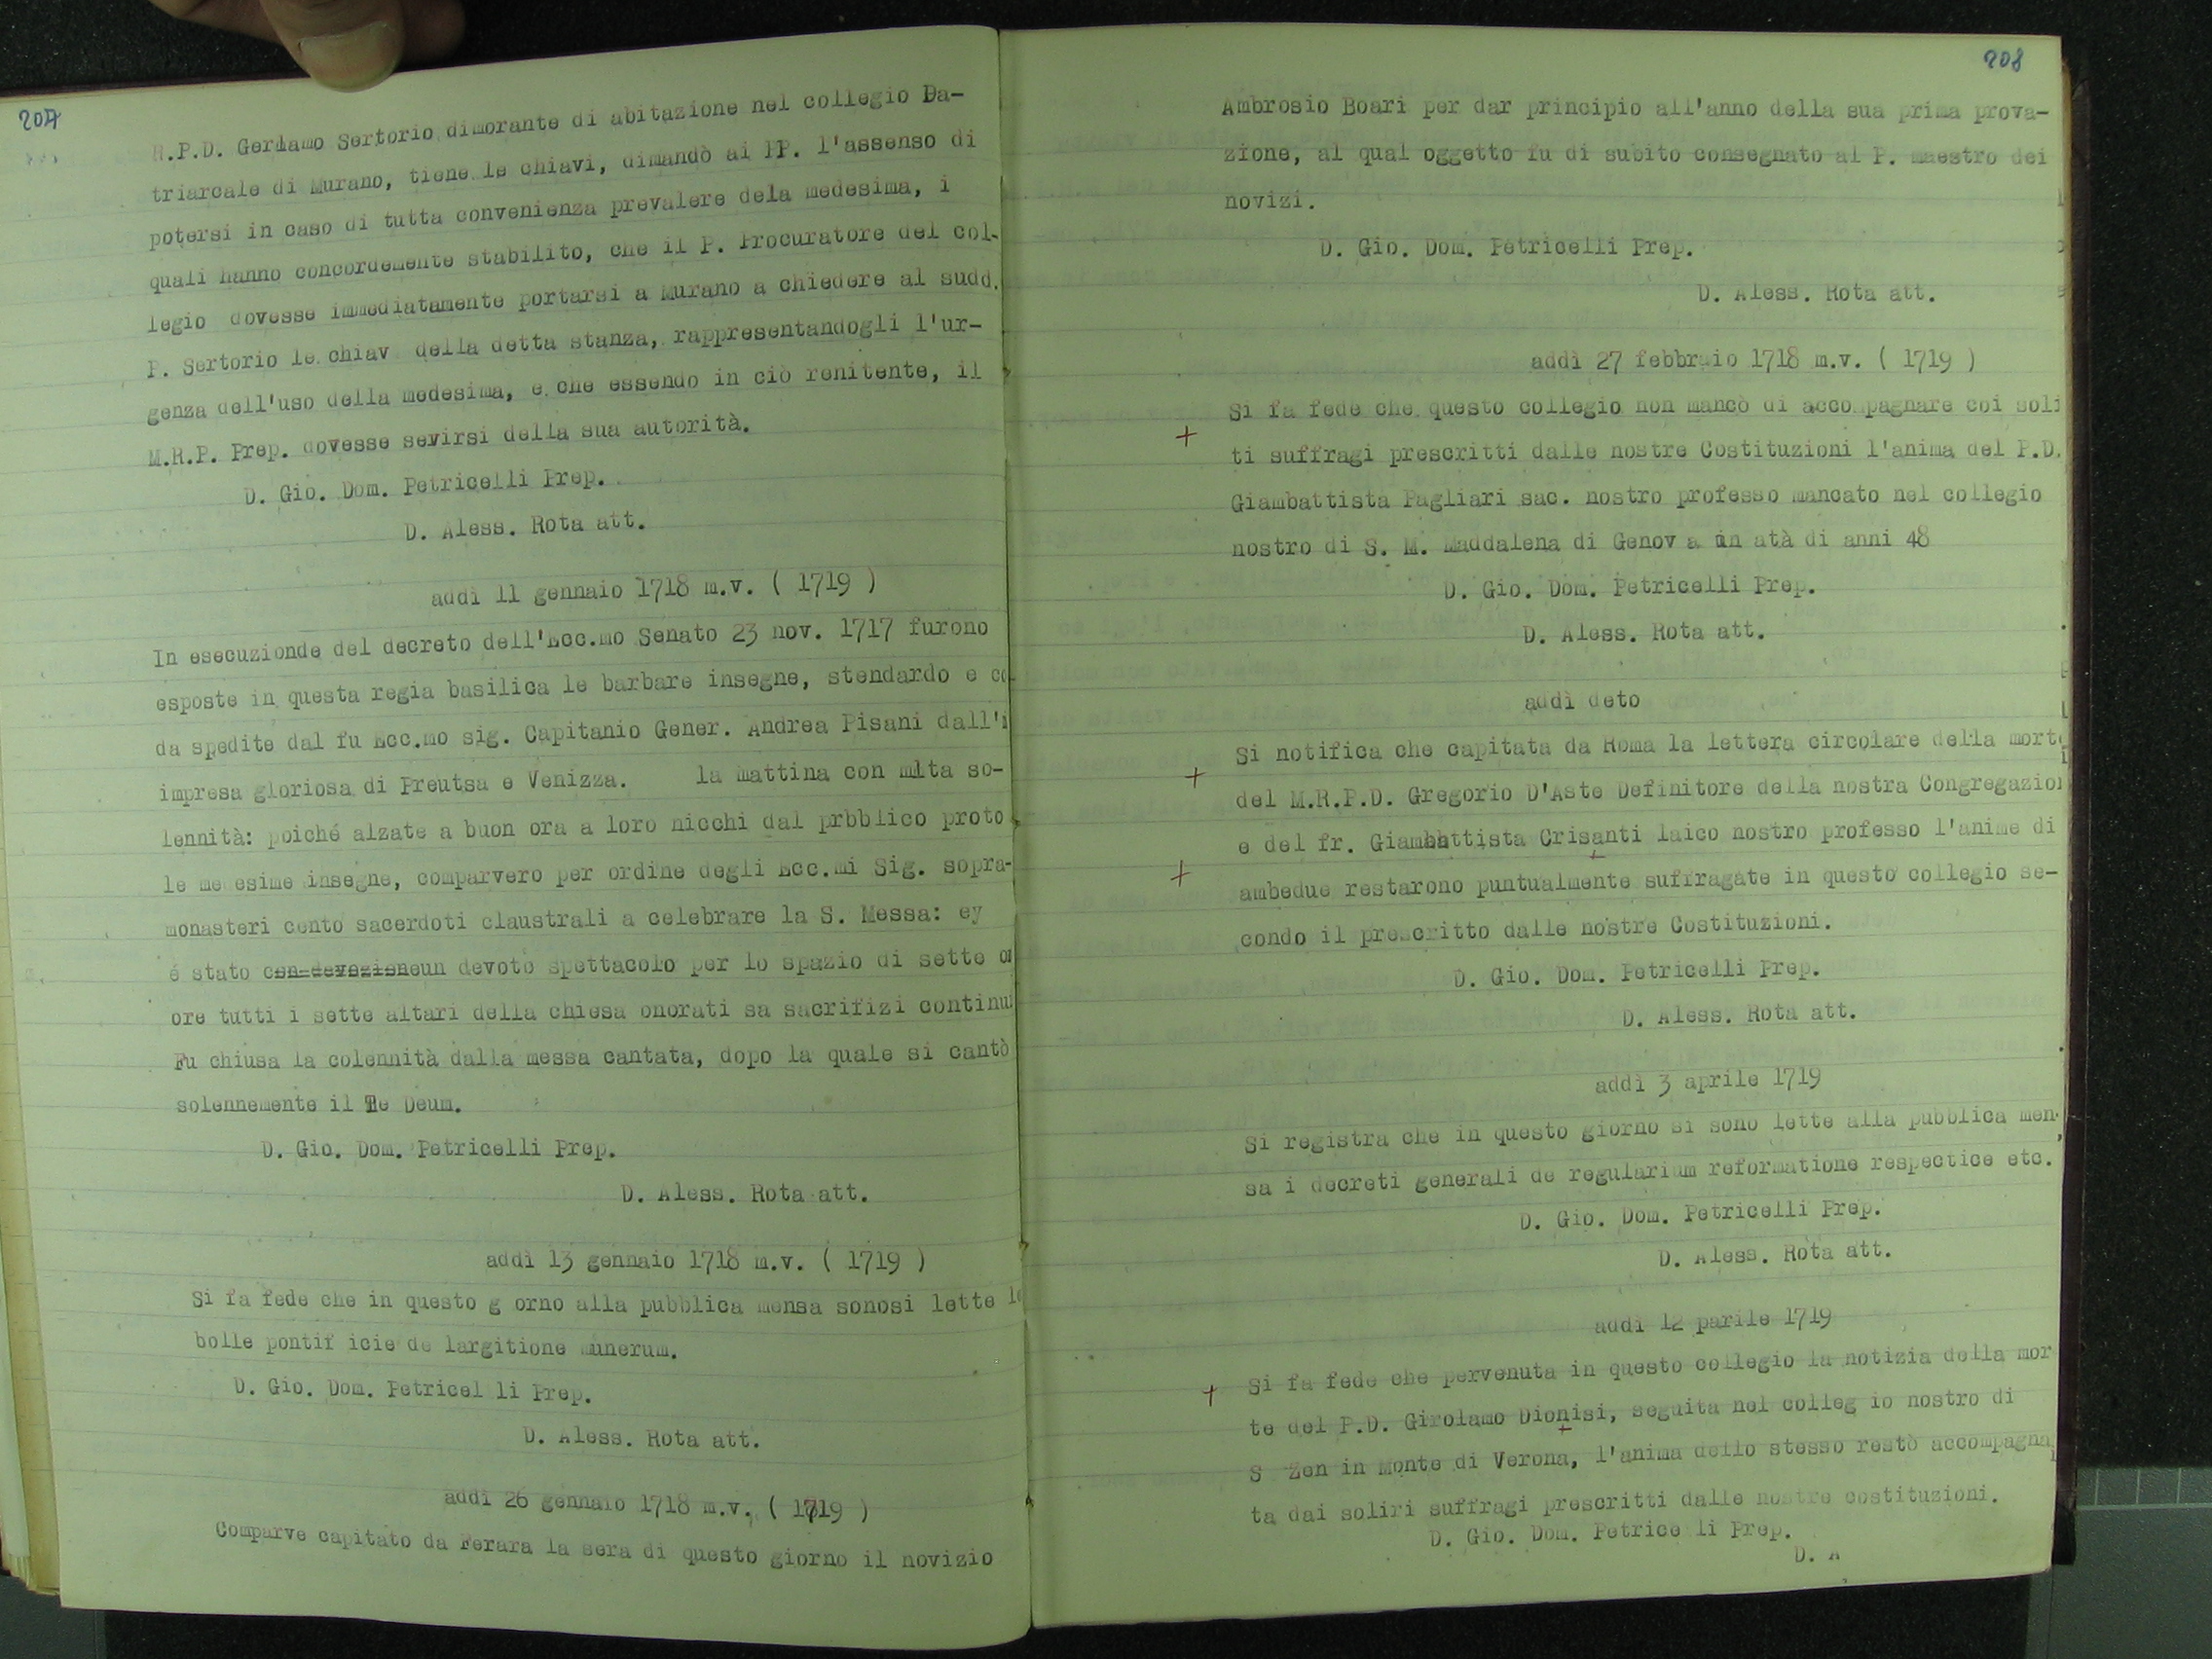 207
R.P.D. Gerlamo Sertorio dimorante di abitazione nel collegio Pa-
triarcale di Murano, tiene le chiavi, dimandò ai PP. l'assenso di
potersi in caso di tutta convenienza prevalere dela medesima, i
quali hanno concordemente stabilito, che il P. Procuratore del col-
legio dovesse immediatamente portarsi a Murano a chiedere al sudd.
P. Sertorio le chiav della detta stanza, rappresentandogli l'ur-
genza dell'uso della medesima, e che essendo in ciò renitente, il
M.R.P. Prep. dovesse sevirsi della sua autorità.
D. Gio. Dom. Petricelli Prep.
D. Aless. Rota att.
addì 11 gennaio 1718 m.v. ( 1719 )
In esecuzionde del decreto dell'Ecc.mo Senato 23 nov. 1717 furono
esposte in questa regia basilica le barbare insegne, stendardo e co
da spedite dal fu Ecc.mo sig. Capitanio Gener. Andrea Pisani dall'i
impresa gloriosa di Preutsa e Venizza. la mattina con mlta so-
lennità: poiché alzate a buon ora a loro nicchi dal prbblico proto
le medesime insegne, comparvero per ordine degli Ecc.mi Sig. sopra-
monasteri cento sacerdoti claustrali a celebrare la S. Messa: ey
é stato con devozione un devoto spettacolo per lo spazio di sette o
ore tutti i sette altari della chiesa onorati sa sacrifizi continu
Fu chiusa la colennità dalla messa cantata, dopo la quale si cantò
solennemente il Te Deum.
D. Gio. Dom. Petricelli Prep.
D. Aless. Rota att.
addì 13 gennaio 1718 m.v. ( 1719 )
Si fa fede che in questo g orno alla pubblica mensa sonosi lette le
bolle pontif icie de largitione munerum.
D. Gio. Dom. Petricel li Prep.
D. Aless. Rota att.
addì 26 gennaio 1718 m.v. ( 1719 )
Comparve capitato da Ferara la sera di questo giorno il novizio
208
Ambrosio Boari per dar principio all'anno della sua prima prova-
zione, al qual oggetto fu di subito consegnato al P. maestro dei
novizi.
D. Gio. Dom. Petricelli Prep.
D. Aless. Rota att.
addì 27 febbraio 1718 m.v. ( 1719 )
Si fa fede che questo collegio non mancò di accompagnare coi soli
+ ti suffragi prescritti dalle nostre Costituzioni l'anima del P.D.
Giambattista Pagliari sac. nostro professo mancato nel collegio
nostro di S. M. Maddalena di Genov a in atà di anni 48
D. Gio. Dom. Petricelli Prep.
D. Aless. Rota att.
addì deto
Si notifica che capitata da Roma la lettera circolare della morte
+ del M.R.P.D. Gregorio D'Aste Definitore della nostra Congregazion
e del fr. Giambattista Crisanti laico nostro professo l'anime di
+ ambedue restarono puntualmente suffragate in questo collegio se-
condo il prescritto dalle nostre Costituzioni.
D. Gio. Dom. Petricelli Prep.
D. Aless. Rota att.
addì 3 aprile 1719
Si registra che in questo giorno si sono lette alla pubblica men-
sa i decreti generali de regularium reformatione respectice etc.
D. Gio. Dom. Petricelli Prep.
D. Aless. Rota att.
addì 12 parile 1719
+ Si fa fede che pervenuta in questo collegio la notizia della mor
te del P.D. Girolamo Dionisi, seguita nel colleg io nostro di
S Zen in Monte di Verona, l'anima dello stesso restò accompagna
ta dai soliri suffragi prescritti dalle nostre costituzioni.
D. Gio. Dom. Petrice li Prep.
D. A